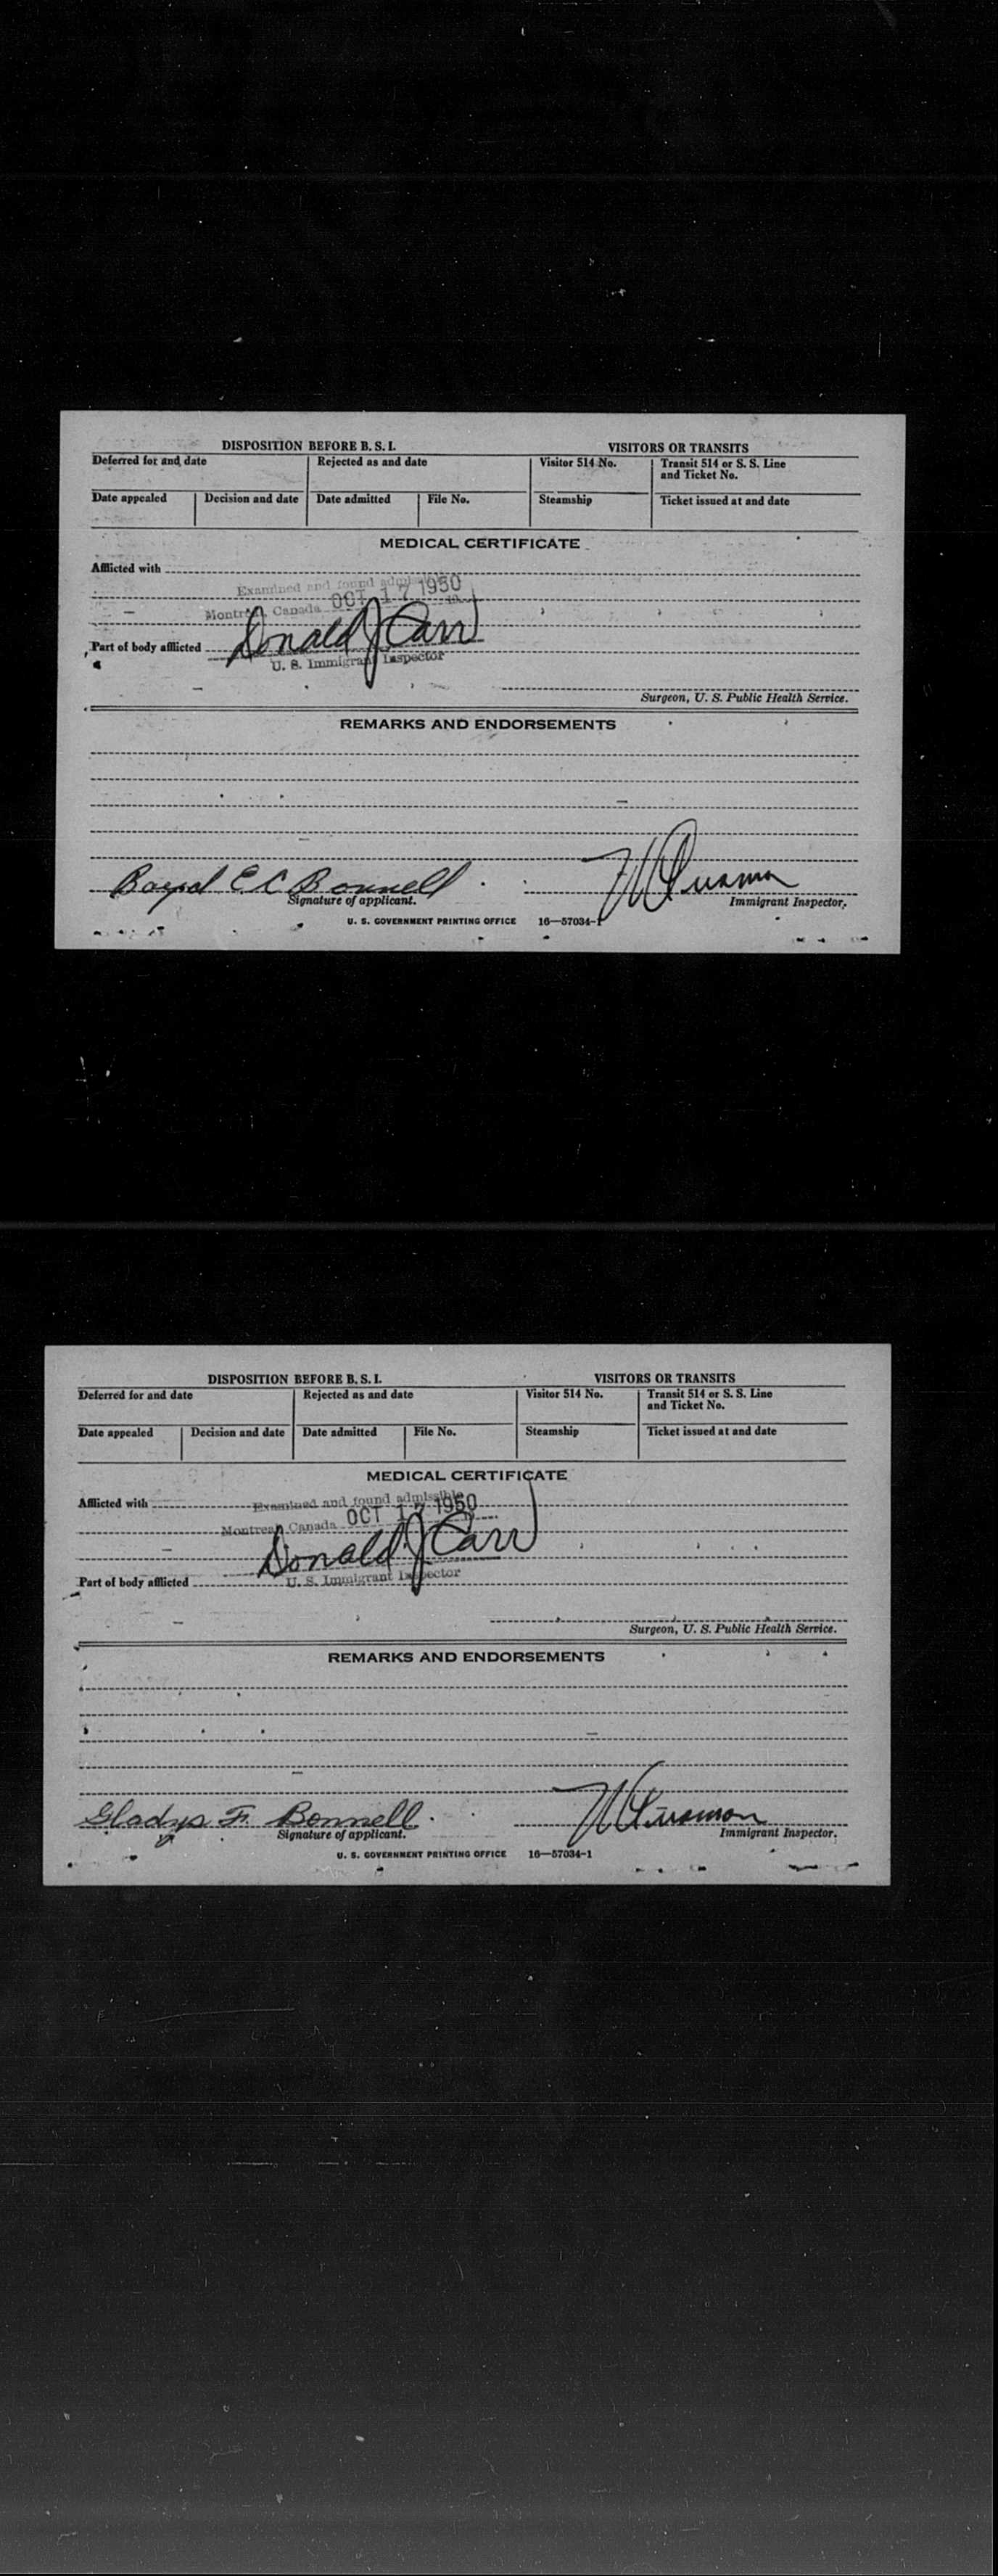 DISPOSITION BEFORE B. S. I. VISITORS OR TRANSITS
Deferred for and date Rejected as and date Visitor 514 No. Transit 514 or S. S. Line and Ticket No.
Date appealed Decision and date Date admitted File No. Steamship Ticket issued at and date
MEDICAL CERTIFICATE
Afflicted with
Examined and found admissible
Montreal, Canada OCT 17 1950
Donald J Carr
Part of body afflicted
U. S. Immigrant Inspector
Surgeon, U. S. Public Health Service.
REMARKS AND ENDORSEMENTS
Boyd E C Bonnell
Signature of applicant. Immigrant Inspector.
U. S. GOVERNMENT PRINTING OFFICE 16—57034-1
DISPOSITION BEFORE B. S. I. VISITORS OR TRANSITS
Deferred for and date Rejected as and date Visitor 514 No. Transit 514 or S. S. Line and Ticket No.
Date appealed Decision and date Date admitted File No. Steamship Ticket issued at and date
MEDICAL CERTIFICATE
Afflicted with
Examined and found admissible
Montreal, Canada OCT 17 1950
Donald J Carr
Part of body afflicted
U. S. Immigrant Inspector
Surgeon, U. S. Public Health Service.
REMARKS AND ENDORSEMENTS
Gladys F. Bonnell.
Signature of applicant. Immigrant Inspector.
U. S. GOVERNMENT PRINTING OFFICE 16—57034-1